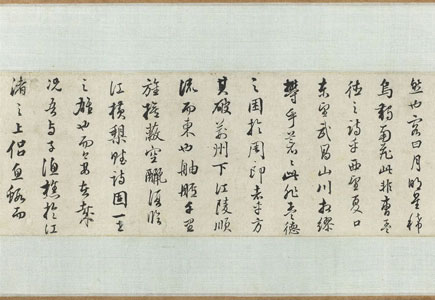 然也客曰月明星稀
烏鵲南飛此非曹孟
德之詩乎西望夏口
東望武昌山川相繆
鬱乎蒼〻此非孟德
之困於周郎者乎方
其破荊州下江陵順
流而東也舳艫千里
旌旗蔽空釃酒臨
江橫槊賦詩固一世
之雄也而今安在哉
況吾與子漁樵於江
渚之上侶魚鰕而